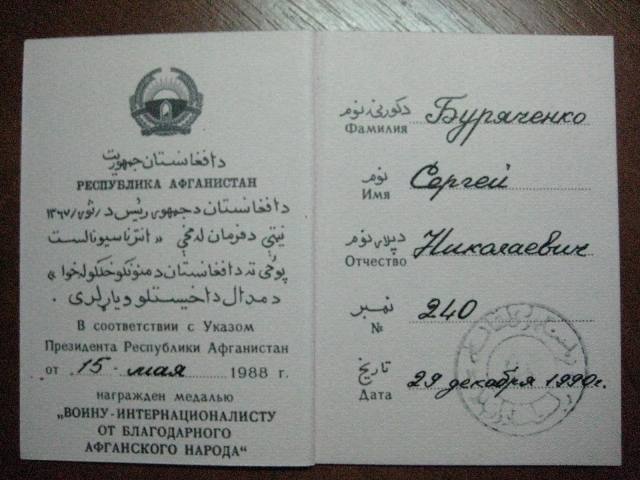 دافغانستان جمهوریت
РЕСПУБЛИКА АФГАНИСТАН
دافغانستان دجمهوری رئیس د /ثور/ ۱۳۶۷
نیټې دفرمان له مخې « انترناسیونالست
پوځی ته دافغانستان دمننوکوخکلو له خوا »
دمدال داخیستلو ویاړلری .
В соответствии с Указом
Президента Республики Афганистан
от 15 мая 1988 г.
награжден медалью
„ВОИНУ-ИНТЕРНАЦИОНАЛИСТУ
ОТ БЛАГОДАРНОГО
АФГАНСКОГО НАРОДА“
دکورنی نوم
Фамилия Буряченко
نوم
Имя Сергей
دپلار نوم
Отчество Николаевич
نمبر
№ 240
تاریخ
Дата 29 декабря 1990г.